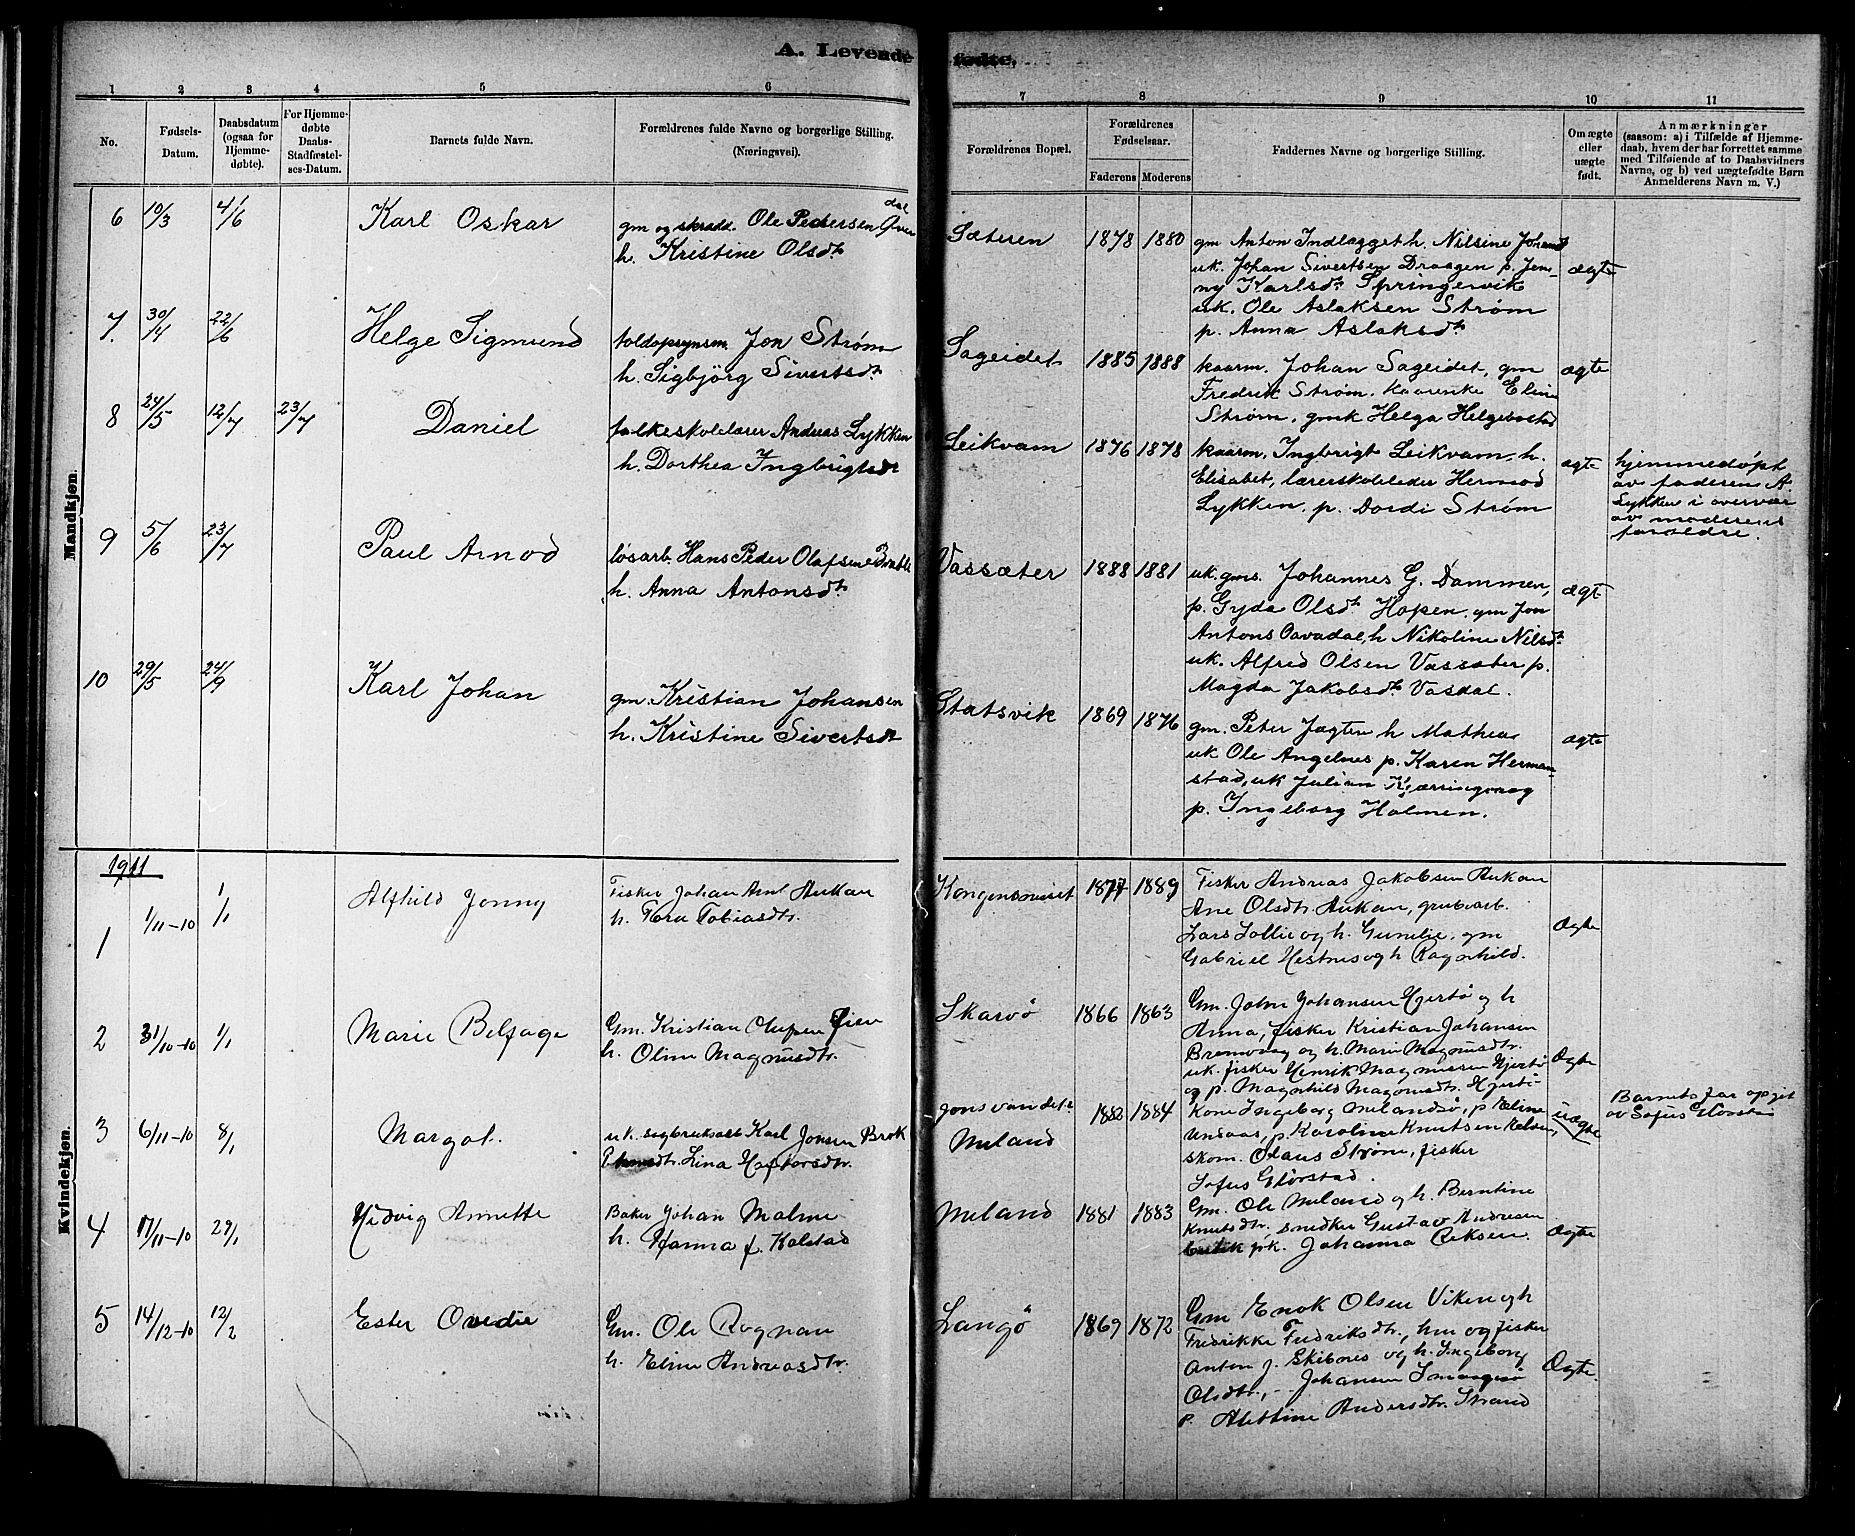 A. Levende fødte.
1 2 3 4 5 6 7 8 9 10 11
No.
Fødsels-
Datum.
Daabsdatum
(ogsaa for
Hjemme-
døbte).
For Hjemme-
døbte
Daabs-
Stadfæstel-
ses-Datum.
Barnets fulde Navn.
Forældrenes fulde Navne og borgerlige Stilling.
(Næringsvei).
Forældrenes Bopæl.
Forældrenes
Fødselsaar.
Faderens Moderens
Faddernes Navne og borgerlige Stilling.
Om ægte
eller
uægte
født.
Anmærkninger
(saasom: a) i Tilfælde af Hjemme-
daab, hvem der har forrettet samme
med Tilføiende af to Daabsvidners
Navne, og b) ved uægtefødte Børn
Anmelderens Navn m. V.)
Mandkjøn.
6 10/3 4/6 Karl Oskar
gm og skrædd. Ole Pedersen
h. Kristine Olsdt
Sæteren 1878 1880
gm Anton Indlægget h. Nilsine Johansd
uk. Johan Sivertsen Draagen p. Jen-
ny Karlsdt Springervik
uk. Ole Aslaksen Strøm
p. Anna Aslaksdt
ægte
7. 30/4 22/6 Helge Sigmund
toldopsynsm. Jon Strøm
h. Sigbjörg Sivertsdt
Sageidet 1885 1888
kaarm. Johan Sageidet, gm
Fredrik Strøm, kaarenke Eline
Strøm, gmk Helga Helgebostad
ægte
8 24/5 12/7 23/7 Daniel
folkeskolelærer Andreas Lykken
h. Dorthea Ingbrigtsdt
Leikvam 1876 1878
kaarm. Ingbrigt Leikvam, h.
Elisabet, lærerskoleleder Hermod
Lykken, p. Dordi Strøm
ægte
hjemmedøpt
av faderen A
Lykken i overvær
av moderens
foreldre.
9 5/6 23/7 Paul Arnod
løsarb. Hans Peder Olafsen
h. Anna Antonsdt
Vassæter 1888 1881
uk. gms. Johannes G. Dammen,
p. Gyda Olsdt Hopen, gm Jon
Antons Oavadal, h Nikoline Nilsdt
uk. Alfred Olsen Vassæter p.
Magda Jakobsdt Vasdal.
ægte
10 29/5 24/9 Karl Johan
gm. Kristian Johansen
h. Kristine Sivertsdt
Statsvik 1869 1876
gm. Peter Jægten h Mathea
uk Ole Angelnes p. Karen Herman-
stad, uk Julian Kjærringvaag
p. Ingeborg Holmen.
ægte
Kvindekjøn.
1911
1 1/11-10 1/1 Alfhild Jonny
Fisker Johan Arnt Aukan
h. Tora Tobiasdtr.
Kongensvoldet 1877 1889
Fisker Andreas Jakobsen Aukan
Ane Olsdtr. Aukan, grubearb.
Lars Lollie og h. Gunelie, gm
Gabriel Hestnes og h Ragnhild.
Ægte
2 31/10-10 1/1 Marie Belfage
Gm. Kristian Olufsen
h. Oline Magnusdtr.
Skarvö 1866 1863
Gm. John Johansen Hjertö og h
Anna, fisker Kristian Johansen
Bremvaag og h. Marie Magnusdtr.
uk. fisker Henrik Magnussen Hjertö
og p. Magnhild Magnusdtr. Hjertö
Ægte
3 6/11-10 8/1 Margot.
uk. sagbruksarb Karl Jonsen Brok
Lina Hartorsdtr.
Jonsvandet
Meland 1882 1884
Kone Ingeborg Melandsø, p Eline
Undaas, p. Karoline Knutsen
skom. Olaus Strøm, fisker
Sofus Glørstad.
uægte
Barnets far opgit
av Sofus Glørstad
4 17/11-10 29/1 Hedvig Annette
Baker Johan Malmo
h. Hanna f. Kolstad
Meland 1881 1883
Gm. Ole Meland og h. Berntine
Knutsdtr. snedker Gustav Andresen
butik frk. Johanna Eriksen.
Ægte
5 14/12-10 12/2 Ester Ovidie
Gm. Ole Rognan
h. Eline Andreasdtr.
Langö 1869 1872
Gm Enok Olsen Viken og h
Fredrikke Fredriksdtr., hm og fisker
Anton J. Skibnes og h. Ingeborg
Olsdtr., - Johansen Smaagesö
p. Alettine Andersdtr. Strand
Ægte.